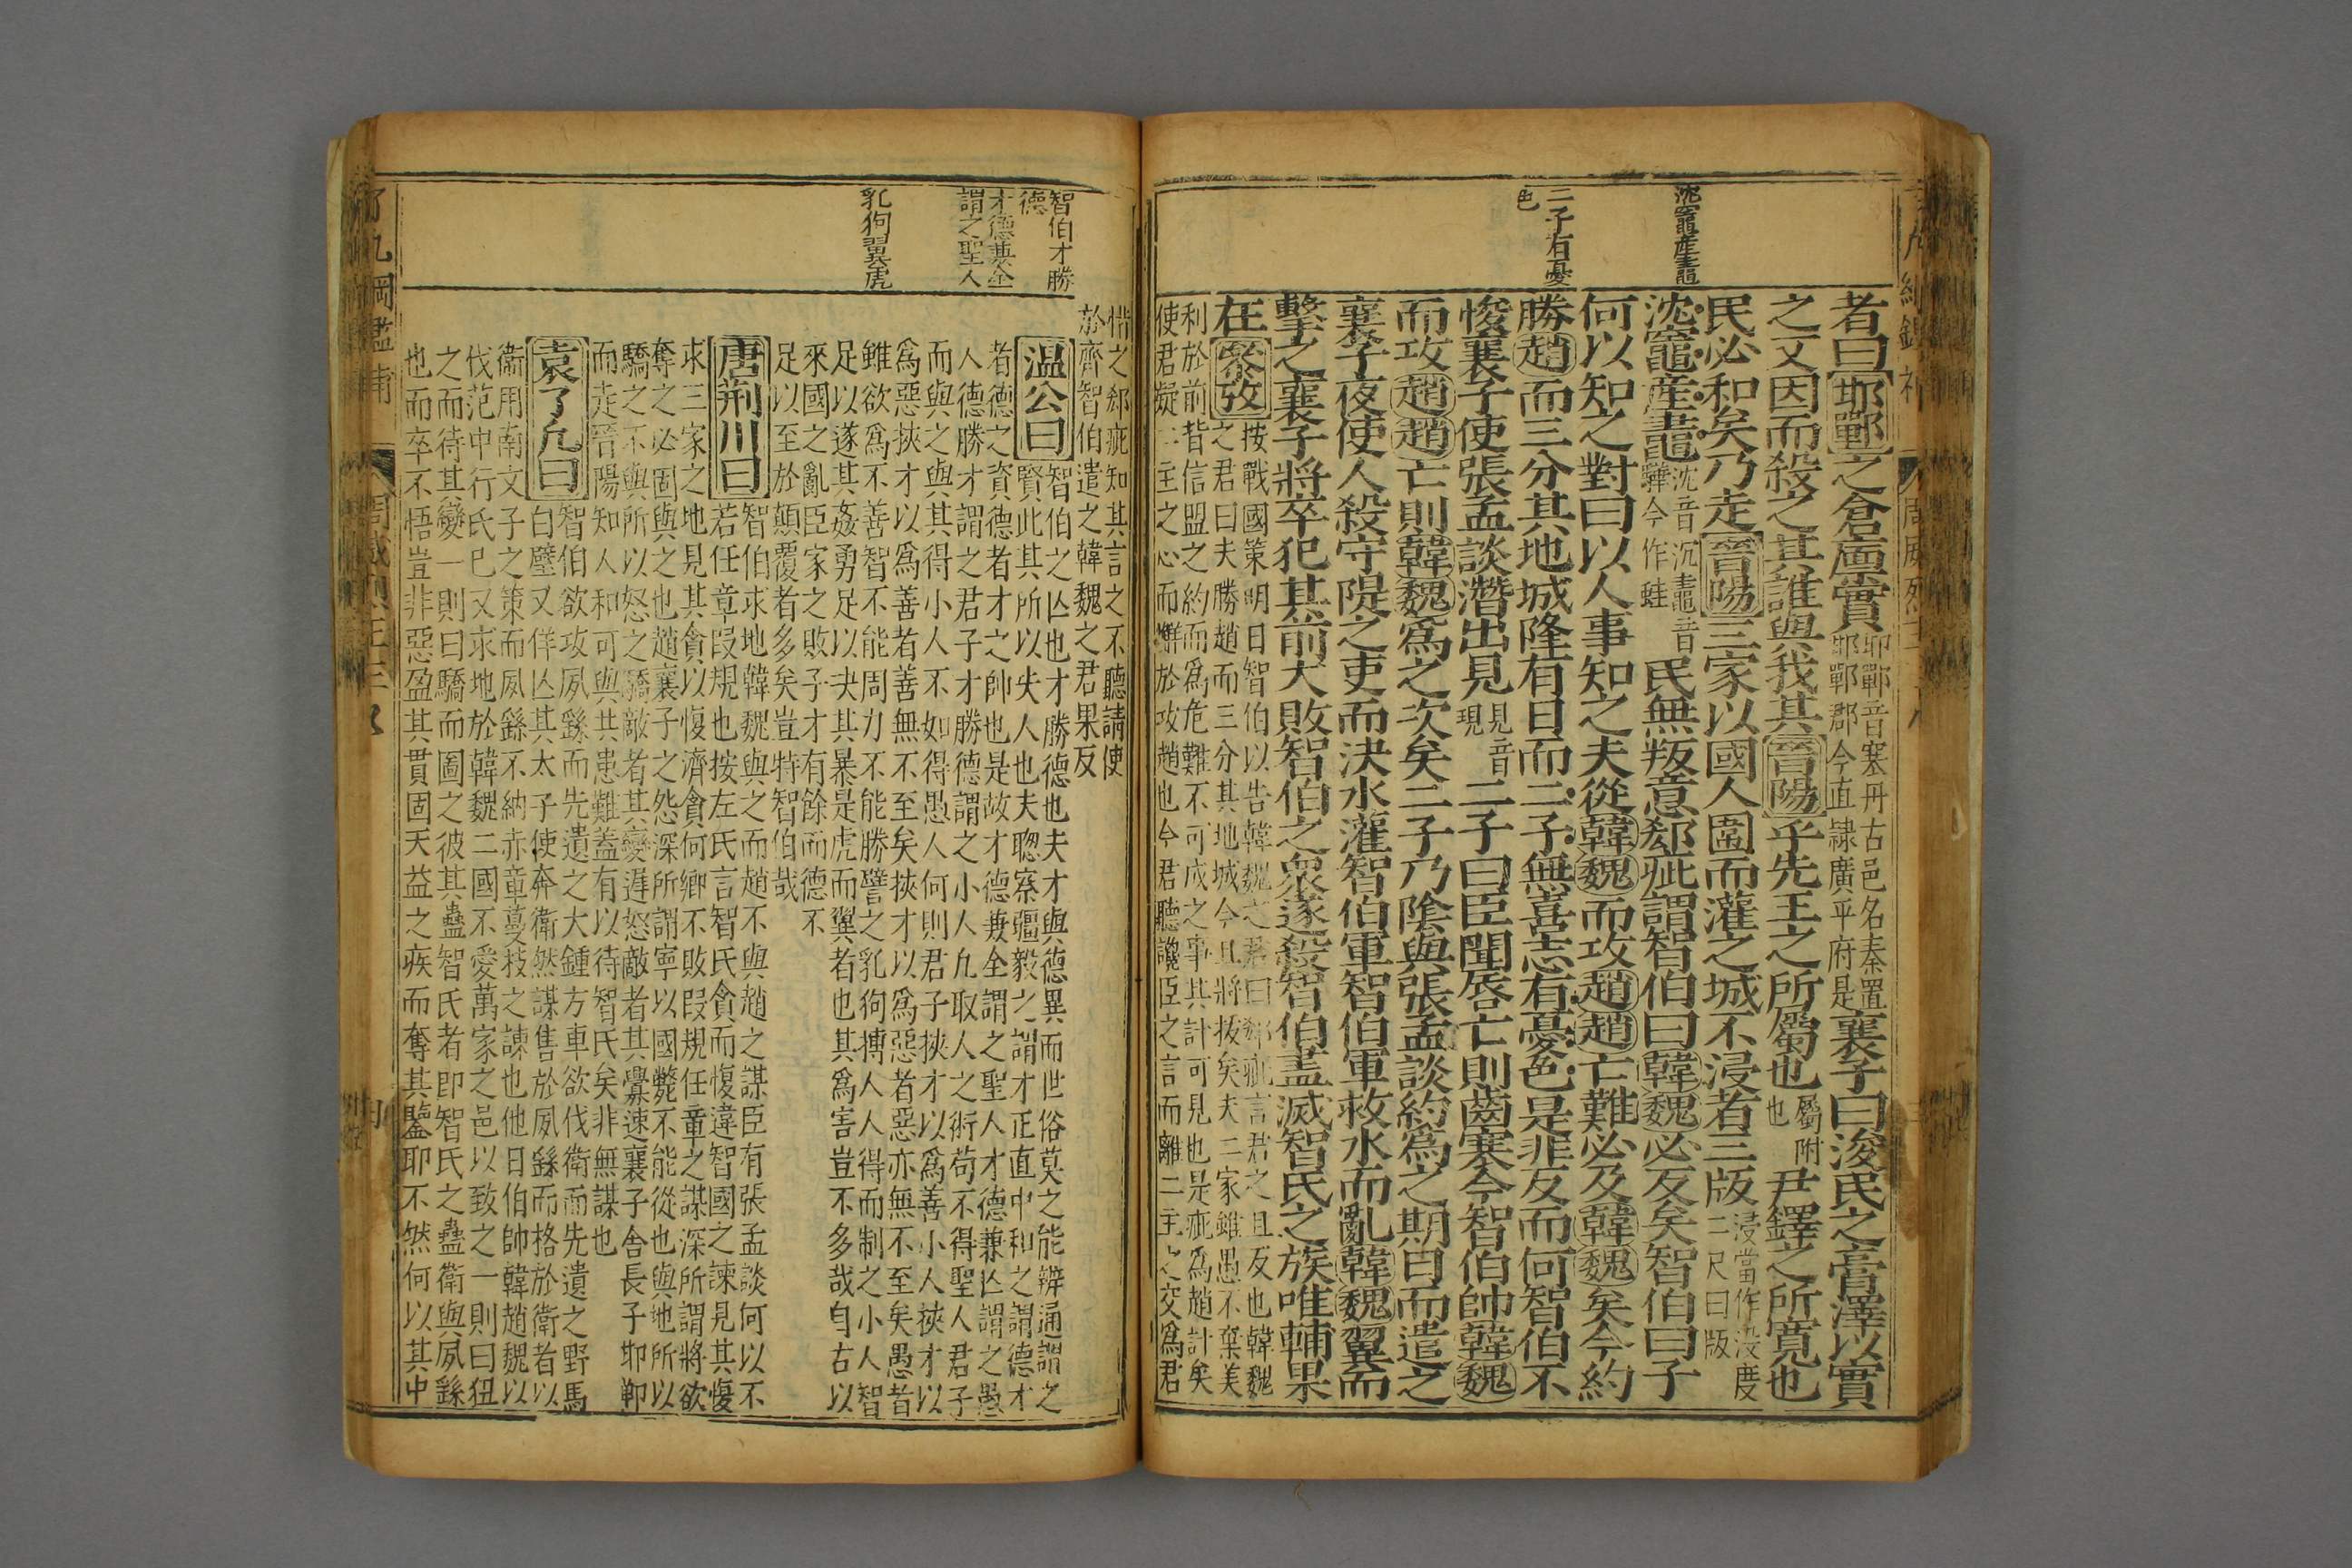 沈竈產鼃
二子有憂
色
者曰邯鄲之倉廩實邯鄲音寒丹古邑名秦置
邯鄲郡今直隸廣平府是襄子曰浚民之膏澤以實
之又因而殺之其誰與我其晉陽乎先王之所屬也屬附
也尹鐸之所寬也
民必和矣乃走晉陽三家以國人圍而灌之城不浸者三版浸當作没度
二尺曰版
沈竈產鼃沈音沉鼃音
驊今作蛙民無叛意郄疵謂智伯曰韓魏必反矣智伯曰子
何以知之對曰以人事知之夫從韓魏而攻趙趙亡難必及韓魏矣今約
勝趙而三分其地城降有日而二子無喜志有憂色是非反而何智伯不
悛襄子使張孟談潛出見見音
現二子曰臣聞唇亡則齒寒今智伯帥韓魏
而攻趙趙亡則韓魏爲之次矣二子乃陰與張孟談約爲之期日而遣之
襄子夜使人殺守隄之吏而決水灌智伯軍智伯軍救水而亂韓魏翼而
擊之襄子將卒犯其前大敗智伯之衆遂殺智伯盡滅智氏之族唯輔果
在緊攷按戰國策明日智伯以告韓魏之君曰郄疵言君之且反也韓魏
之君曰夫勝趙而三分其地城今且將拔矣夫二家雖愚不棄美
利於前背信盟之約而爲危難不可成之事其計可見也是疵爲趙計矣
使君疑二主之心而懈於攻趙也今君聽讒臣之言而離二主之交爲君
智伯才勝
德
才德兼全
謂之聖人
乳狗翼虎
惜之郄疵知其言之不聽請使
於齊智伯遣之韓魏之君果反
溫公曰智伯之亾也才勝德也夫才與德異而世俗莫之能辨通謂之
賢此其所以失人也夫聰察彊毅之謂才正直中和之謂德才
者德之資德者才之帥也是故才德兼全謂之聖人才德兼亾謂之愚
人德勝才謂之君子才勝德謂之小人凢取人之術苟不得聖人君子
而與之與其得小人不如得愚人何則君子挾才以爲善小人挾才以
爲惡挾才以爲善者善無不至矣挾才以爲惡者惡亦無不至矣愚者
雖欲爲不善智不能周力不能勝譬之乳狗搏人人得而制之小人智
足以遂其姦勇足以决其暴是虎而翼者也其爲害豈不多哉自古以
來國之亂臣家之敗子才有餘而德不
足以至於顛覆者多矣豈特智伯哉
唐荊川曰智伯求地韓魏與之而趙不與趙之謀臣有張孟談何以不
若任章叚規也按左氏言智氏貪而愎違智國之諫見其愎
求三家之地見其貪以愎濟貪何鄉不敗叚規任章之謀深所謂將欲
奪之必固與之也趙襄子之怨深所謂寧以國斃不能從也與地所以
驕之不與所以怒之驕敵者其變遲怒敵者其釁速襄子舍長子邯鄲
而走晉陽知人和可與共患難蓋有以待智氏矣非無謀也
袁了凢曰智伯欲攻夙繇而先遺之大鍾方車欲伐衛而先遺之野馬
白璧又佯亾其太子使奔衛然謀售於夙繇而格於衛者以
衛用南文子之策而夙繇不納赤章蔓枝之諫也他日伯帥韓趙魏以
伐范中行氏已又求地於韓魏二國不愛萬家之邑以致之一則曰狃
之而待其變一則曰驕而圖之彼其蠱智氏者即智氏之蠱衛與夙繇
也而卒不悟豈非惡盈其貫固天益之疾而奪其鑒耶不然何以其中
了凢綱鑑補
周威烈王